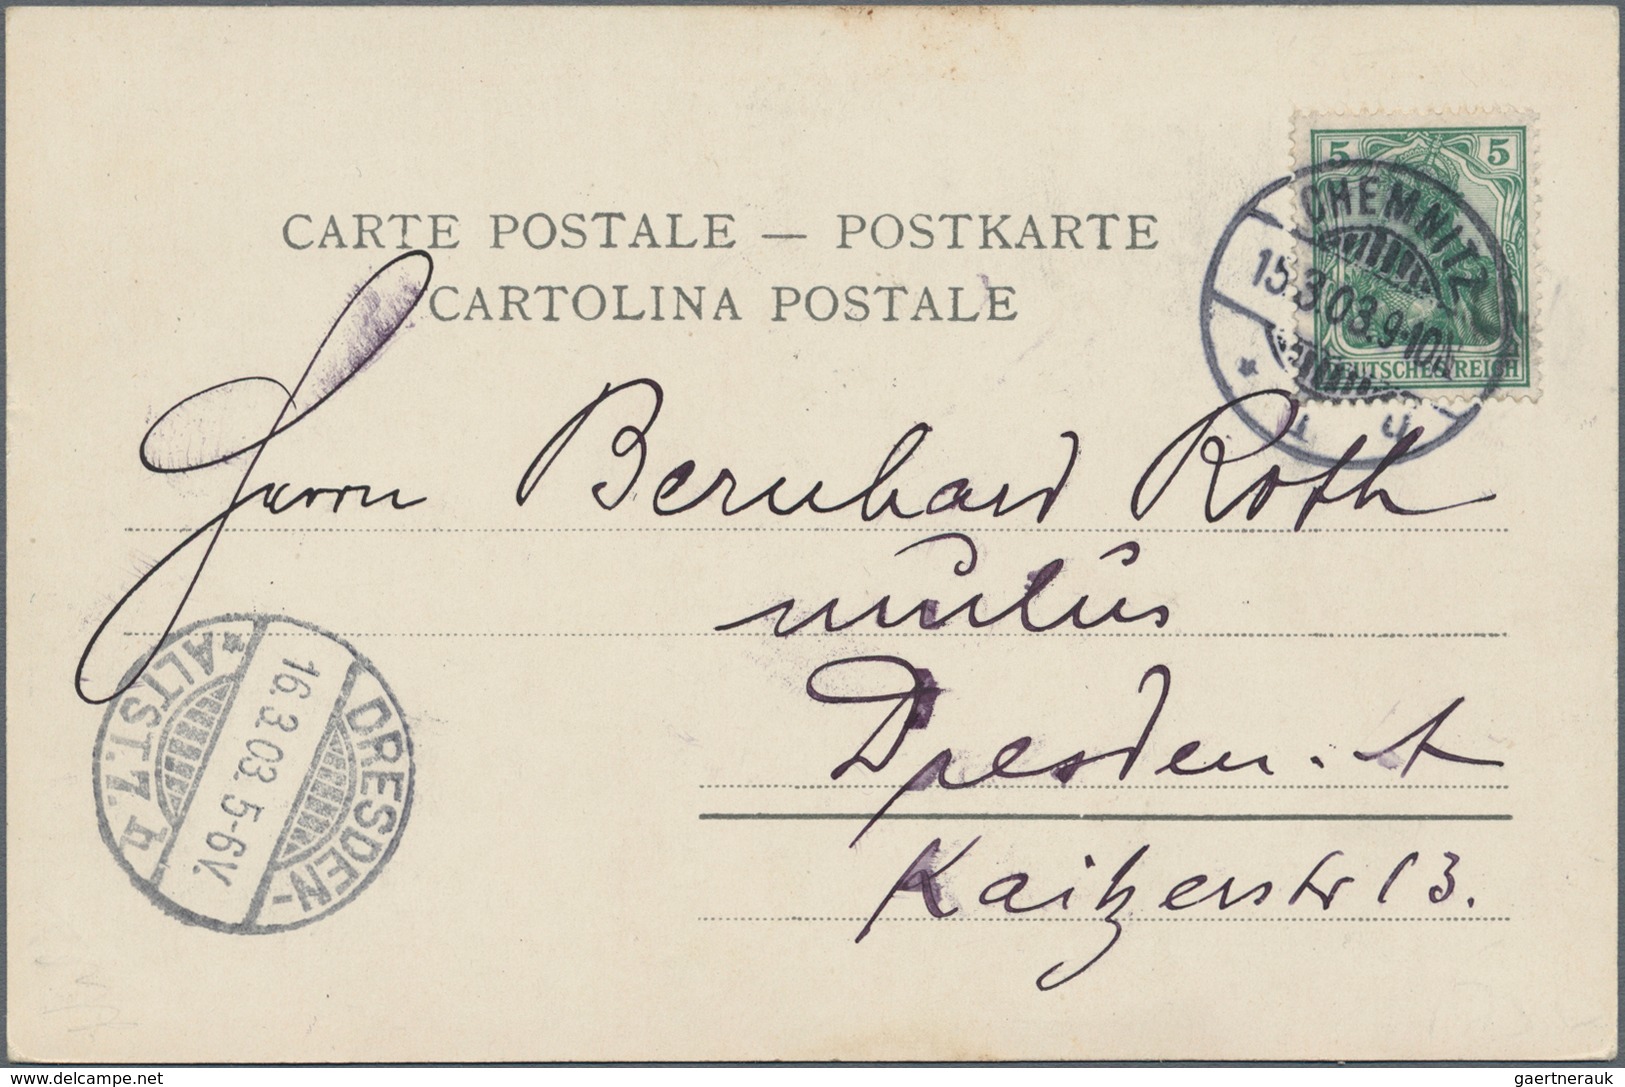 CARTE POSTALE — POSTKARTE
CARTOLINA POSTALE
5 5
DEUTSCHES REICH
CHEMNITZ
15.3.03.9-10N.
* 1 *
Herrn Bernhard Roth
Dresden. A
Kaitzerstr 13.
DRESDEN-
ALTST. 7. h
*
16.3.03. 5-6V.
www.delcampe.net
gaertnerauk